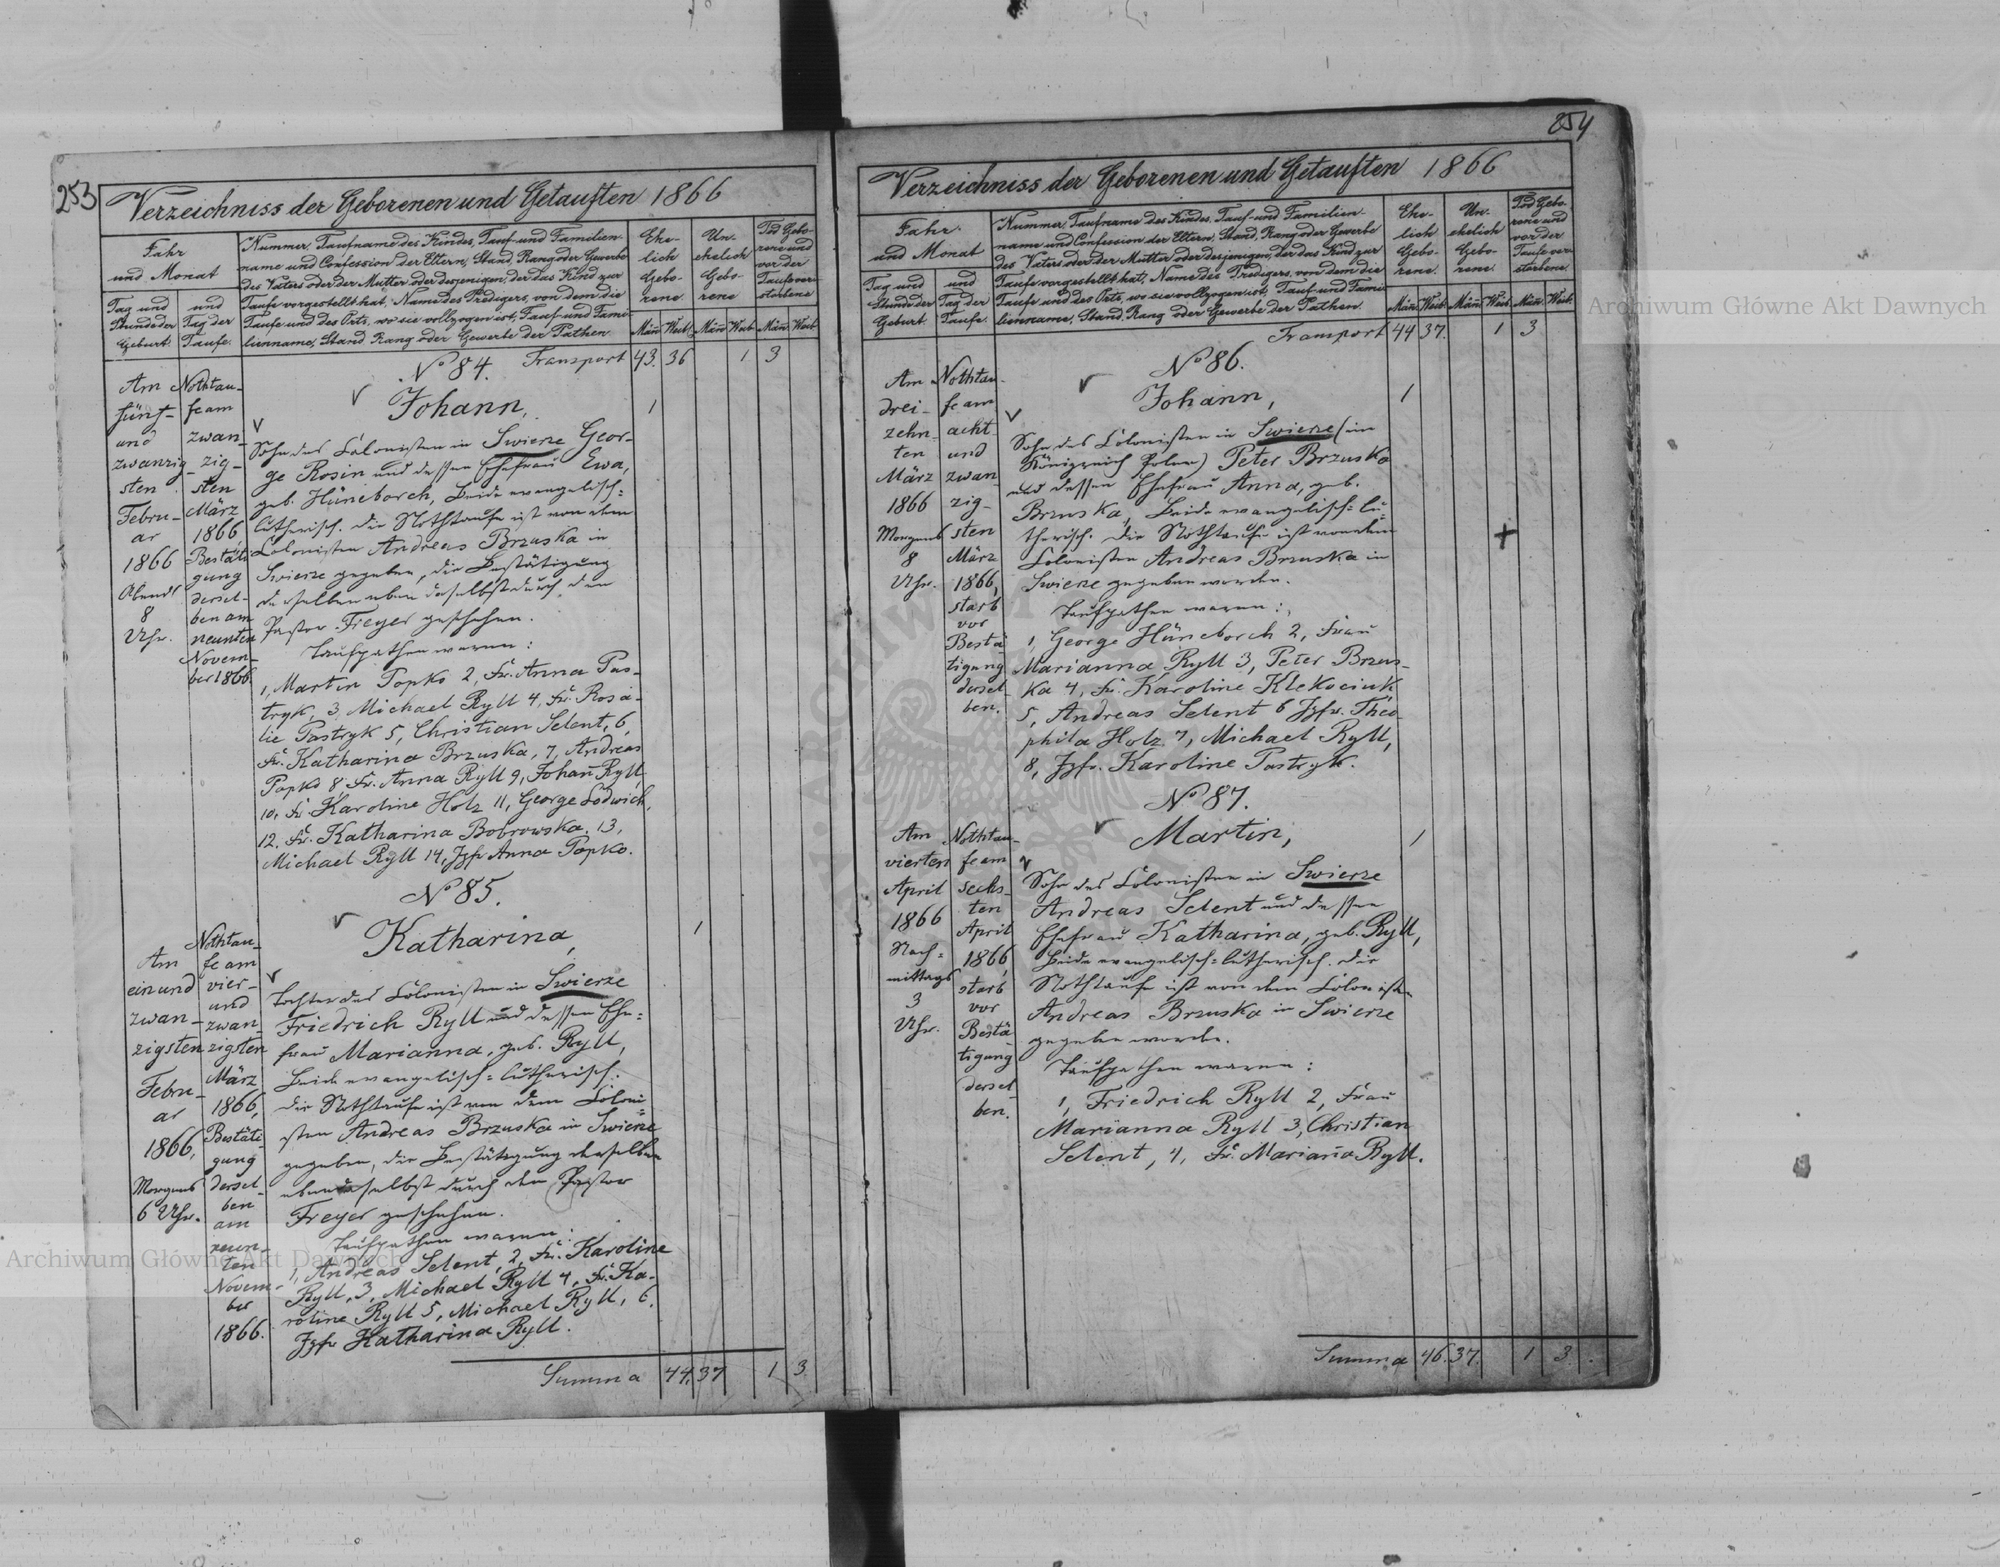 253
Verzeichniss der Geborenen und Getauften 1866
Jahr
und Monat
Tag und
Stunde der
Geburt.
und
Tag der
Taufe.
Nummer, Taufname des Kindes, Tauf- und Familien-
name und Confession der Eltern, Stand, Rang oder Gewerbe
des Vaters oder der Mutter oder desjenigen, der das Kind zur
Taufe vorgestellt hat, Name des Predigers, von dem die
Taufe und des Orts, wo sie vollzogen ist, Tauf- und Fami-
lienname, Stand, Rang oder Gewerbe der Pathen.
Ehe-
lich
Gebo-
rene.
Un-
ehelich
Gebo-
rene
Tod Gebo-
rene und
vor der
Taufe ver-
storbene
Män̄. Weib. Män̄. Weib. Män̄. Weib.
Transport 43. 36 1 3
Am
fünf-
und
zwanzig-
sten
Febru-
ar
1866
Abends
8
Uhr.
Nothtau-
fe am
zwan-
zig-
sten
März
1866
Bestäti-
gung
dersel-
ben am
neunten
Novem-
ber 1866
No 84.
Johann,
1
Sohn des Colonisten in Swierze Geor-
ge Rosin und dessen Ehefrau Ewa,
geb. Hüneborch, beide evangelisch-
lutherisch. Die Nothtaufe ist von dem
Colonisten Andreas Brzuska in
Swierze gegeben, die Bestätigung
derselben eben daselbst durch den
Pastor Freyer geschehen.
Taufpathen waren:
1, Martin Popko 2, Fr. Anna Pas-
tryk, 3, Michael Ryll 4, Fr. Rosa-
lie Pastryk 5, Christian Selent, 6,
Fr. Katharina Brzuska, 7, Andreas
Popko 8 Fr. Anna Ryll 9, Johan̄ Ryll,
10, Fr. Karoline Holz 11, George Lodwich,
12. Fr. Katharina Bobrowska. 13,
Michael Ryll 14, Jgfr Anna Popko.
No 85.
Katharina,
1
Am
ein und
zwan-
zigsten
Febru-
ar
1866,
Morgens
6 Uhr.
Nothtau-
fe am
vier-
und
zwan-
zigsten
März
1866,
Bestäti-
gung
dersel-
ben
am
neun-
ten
Novem-
ber
1866.
Tochter des Colonisten in Swierze
Friedrich Ryll und dessen Ehe-
frau Marianna, geb. Ryll,
beide evangelisch-lutherisch.
Die Nothtaufe ist von dem Coloni-
sten Andreas Brzuska in Swierze
gegeben, die Bestätigung derselben
eben daselbst durch den Pastor
Freyer geschehen.
Taufpathen waren:
1, Andreas Selent, 2, Fr. Karoline
Ryll, 3, Michael Ryll 4, Fr. Ka-
roline Ryll 5, Michael Ryll, 6.
Jgfr Katharina Ryll.
Summa 44. 37 1 3
254
Verzeichniss der Geborenen und Getauften 1866
Jahr
und Monat
Tag und
Stunde der
Geburt
und
Tag der
Taufe.
Nummer, Taufname des Kindes, Tauf- und Familien-
name und Confession der Eltern, Stand, Rang oder Gewerbe
des Vaters oder der Mutter oder desjenigen, der das Kind zur
Taufe vorgestellt hat, Name des Predigers, von dem die
Taufe und des Orts, wo sie vollzogen ist, Tauf- und Fami-
lienname, Stand, Rang oder Gewerbe der Pathen
Ehe-
lich
Gebo-
rene.
Un-
ehelich
Gebo-
rene.
Tod Gebo-
rene und
vor der
Taufe ver-
storbene.
Män̄. Weib. Män̄. Weib. Män̄. Weib.
Transport 44 37. 1 3
Am
drei-
zehn-
ten
März
1866
Morgens
8
Uhr.
Nothtau-
fe am
acht
und
zwan
zig-
sten
März
1866,
starb
vor
Bestä-
tigung
dersel-
ben.
No 86.
Johann,
1
Sohn des Colonisten in Swierze (im
Königreich Polen) Peter Brzuska
und dessen Ehefrau Anna, geb.
Brzuska, beide evangelisch-lu-
therisch. Die Nothtaufe ist von dem
Colonisten Andreas Brzuska in
Swierze gegeben worden.
Taufpathen waren:
1, George Hüneborch 2, Frau
Marianna Ryll 3, Peter Brzus-
ka 4, Fr. Karoline Klekociuk
5, Andreas Selent 6 Jgfr. Theo-
phila Holz 7, Michael Ryll,
8, Jgfr. Karoline Pastryk.
No 87.
Martin,
1
Am
vierten
April
1866
Nach-
mittags
3
Uhr.
Nothtau-
fe am
sechs-
ten
April
1866,
starb
vor
Bestä-
tigung
dersel-
ben.
Sohn des Colonisten in Swierze
Andreas Selent und dessen
Ehefrau Katharina, geb. Ryll,
beide evangelisch-lutherisch. Die
Nothtaufe ist von dem Colonisten
Andreas Brzuska in Swierze
gegeben worden.
Taufpathen waren:
1, Friedrich Ryll 2, Frau
Marianna Ryll 3, Christian
Selent, 4, Fr. Marian̄a Ryll.
Summa 46. 37. 1 3.
Archiwum Główne Akt Dawnych
Archiwum Główne Akt Dawnych